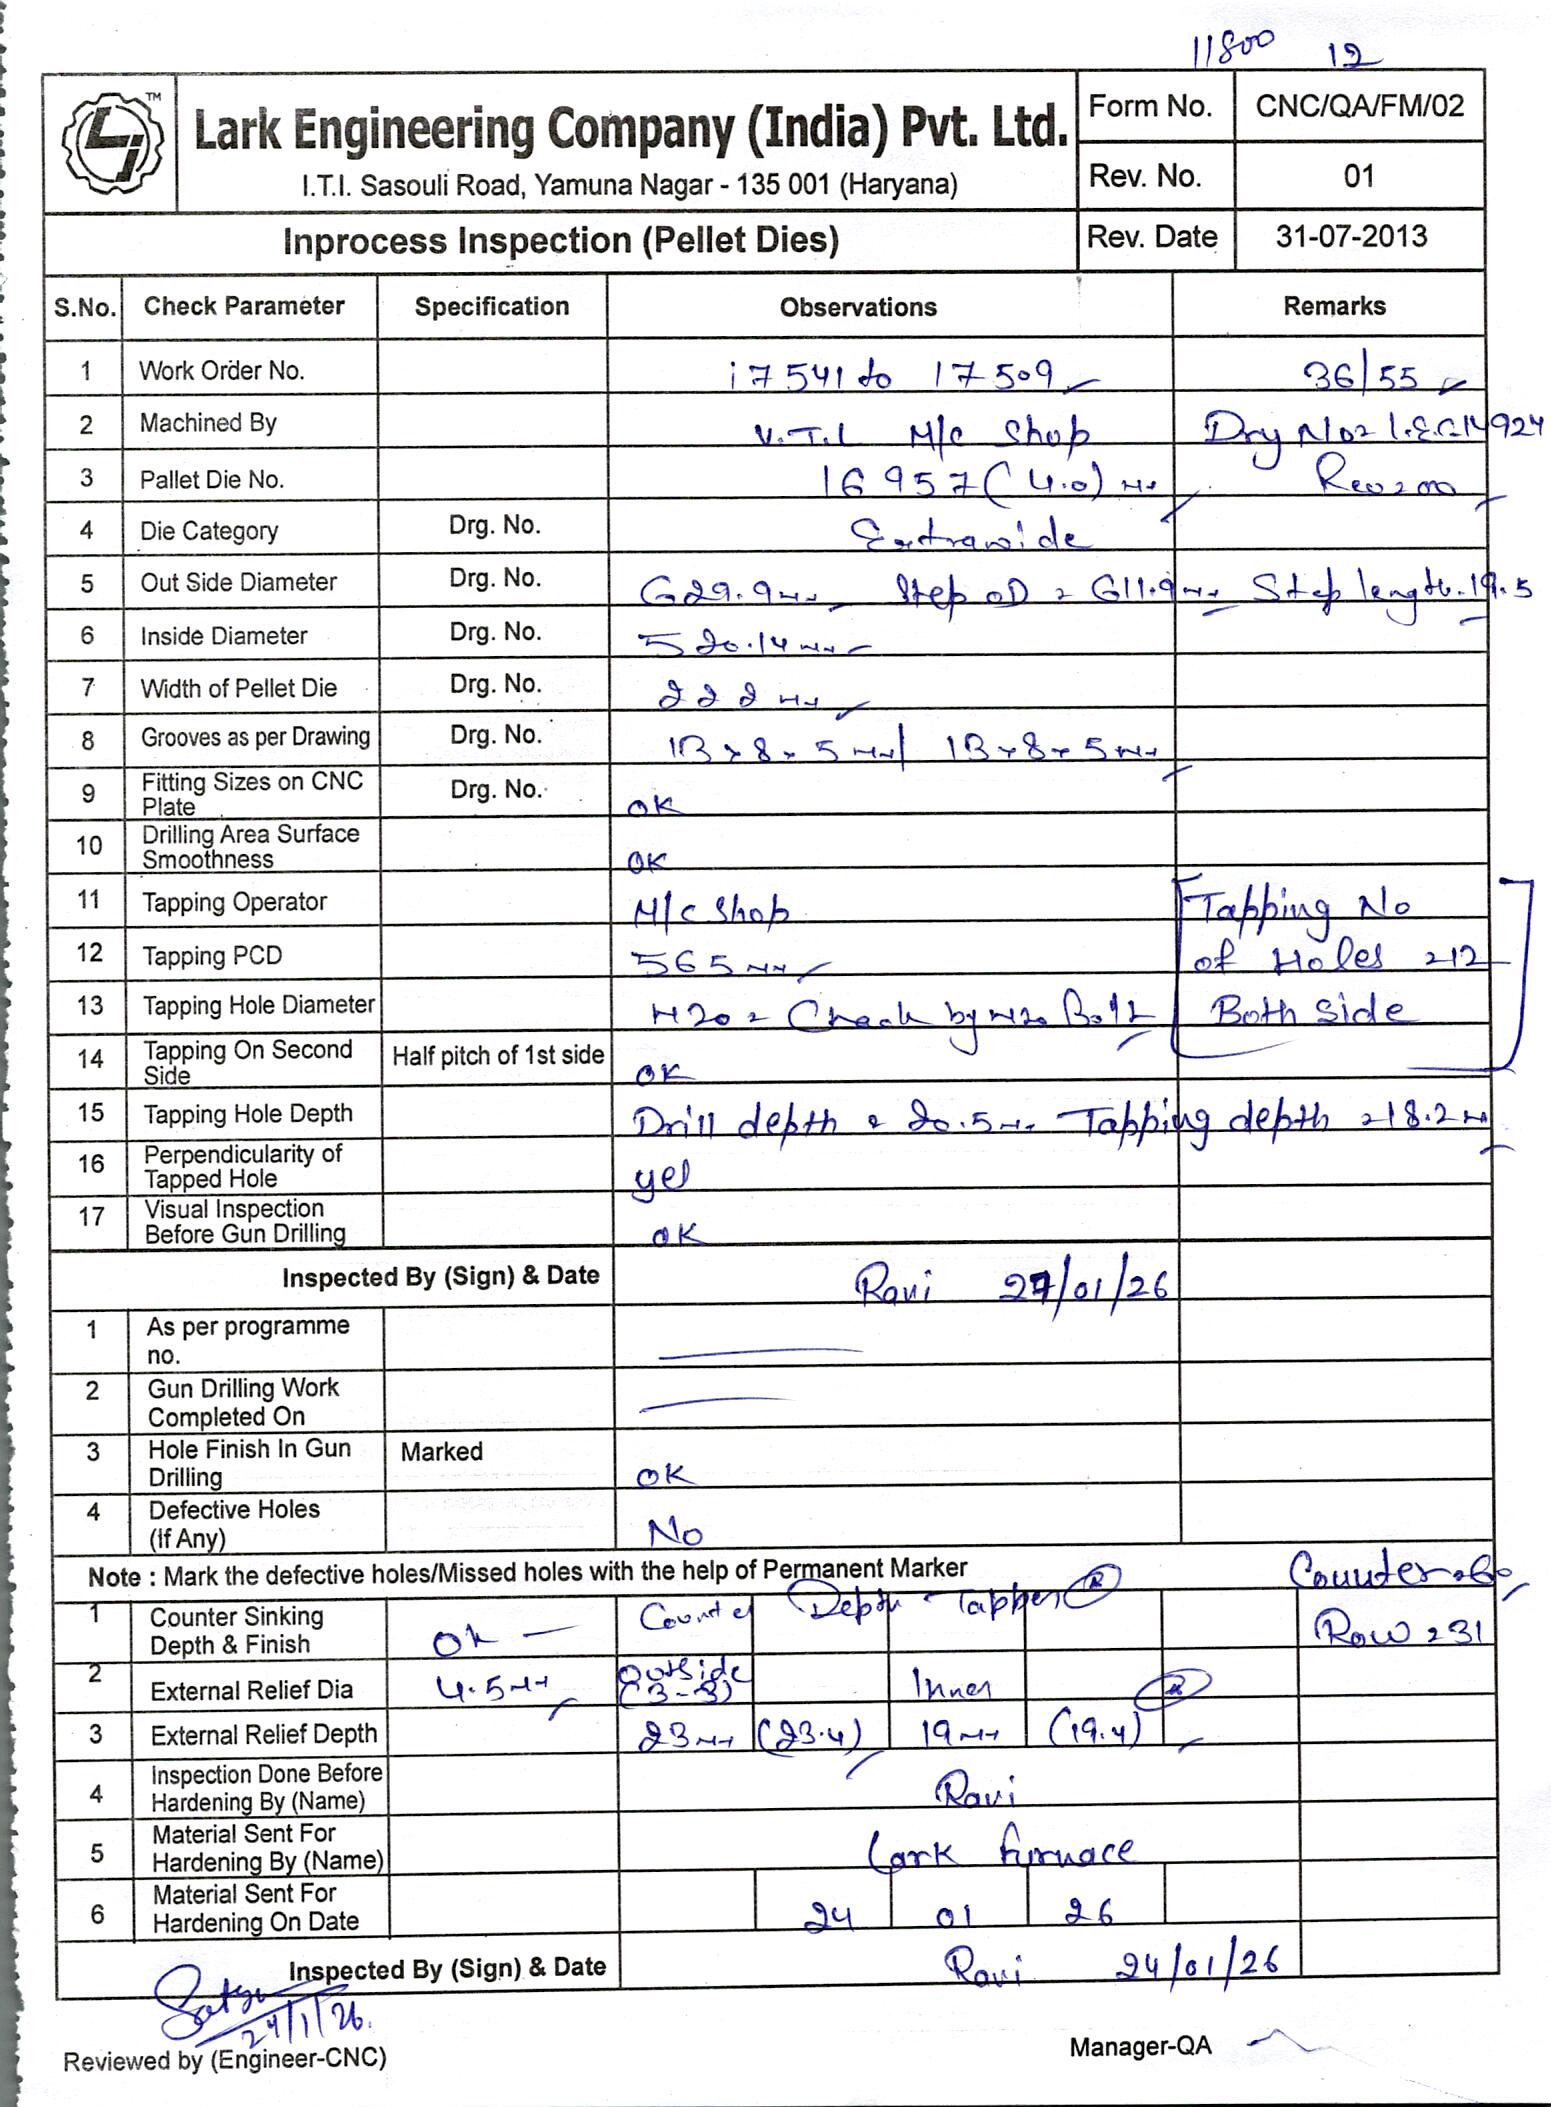 11800 12
TM
Lark Engineering Company (India) Pvt. Ltd.
I.T.I. Sasouli Road, Yamuna Nagar - 135 001 (Haryana)
Form No. CNC/QA/FM/02
Rev. No. 01
Inprocess Inspection (Pellet Dies)
Rev. Date 31-07-2013
S.No. Check Parameter Specification Observations Remarks
1 Work Order No. 17541 to 17509 36/55
2 Machined By V.T.L M/c Shop
3 Pallet Die No. 16957 (4.0)
4 Die Category Drg. No. Extrawide
5 Out Side Diameter Drg. No. 629.9 Step OD = 611.9 Step length 19.5
6 Inside Diameter Drg. No. 520.14
7 Width of Pellet Die Drg. No. 222
8 Grooves as per Drawing Drg. No. 13x8x5 / 13x8x5
9 Fitting Sizes on CNC Plate Drg. No. OK
10 Drilling Area Surface Smoothness OK
11 Tapping Operator M/c Shop Tapping No
12 Tapping PCD 565 of Holes =12
13 Tapping Hole Diameter M20 = Check by M20 Bolt Both Side
14 Tapping On Second Side Half pitch of 1st side OK
15 Tapping Hole Depth Drill depth = 20.5 Tapping depth =18.2
16 Perpendicularity of Tapped Hole yes
17 Visual Inspection Before Gun Drilling OK
Inspected By (Sign) & Date Ravi /01/26
1 As per programme no.
2 Gun Drilling Work Completed On
3 Hole Finish In Gun Drilling Marked OK
4 Defective Holes (If Any) No
Note : Mark the defective holes/Missed holes with the help of Permanent Marker
1 Counter Sinking Depth & Finish OK Counter Depth Row =31
2 External Relief Dia 4.5 Outside (3-3) Inner
3 External Relief Depth 23 (23.4) 19 (19.4)
4 Inspection Done Before Hardening By (Name) Ravi
5 Material Sent For Hardening By (Name) Lark furnace
6 Material Sent For Hardening On Date 24 01 26
Inspected By (Sign) & Date Ravi 24/01/26
24/1/26.
Reviewed by (Engineer-CNC)
Manager-QA